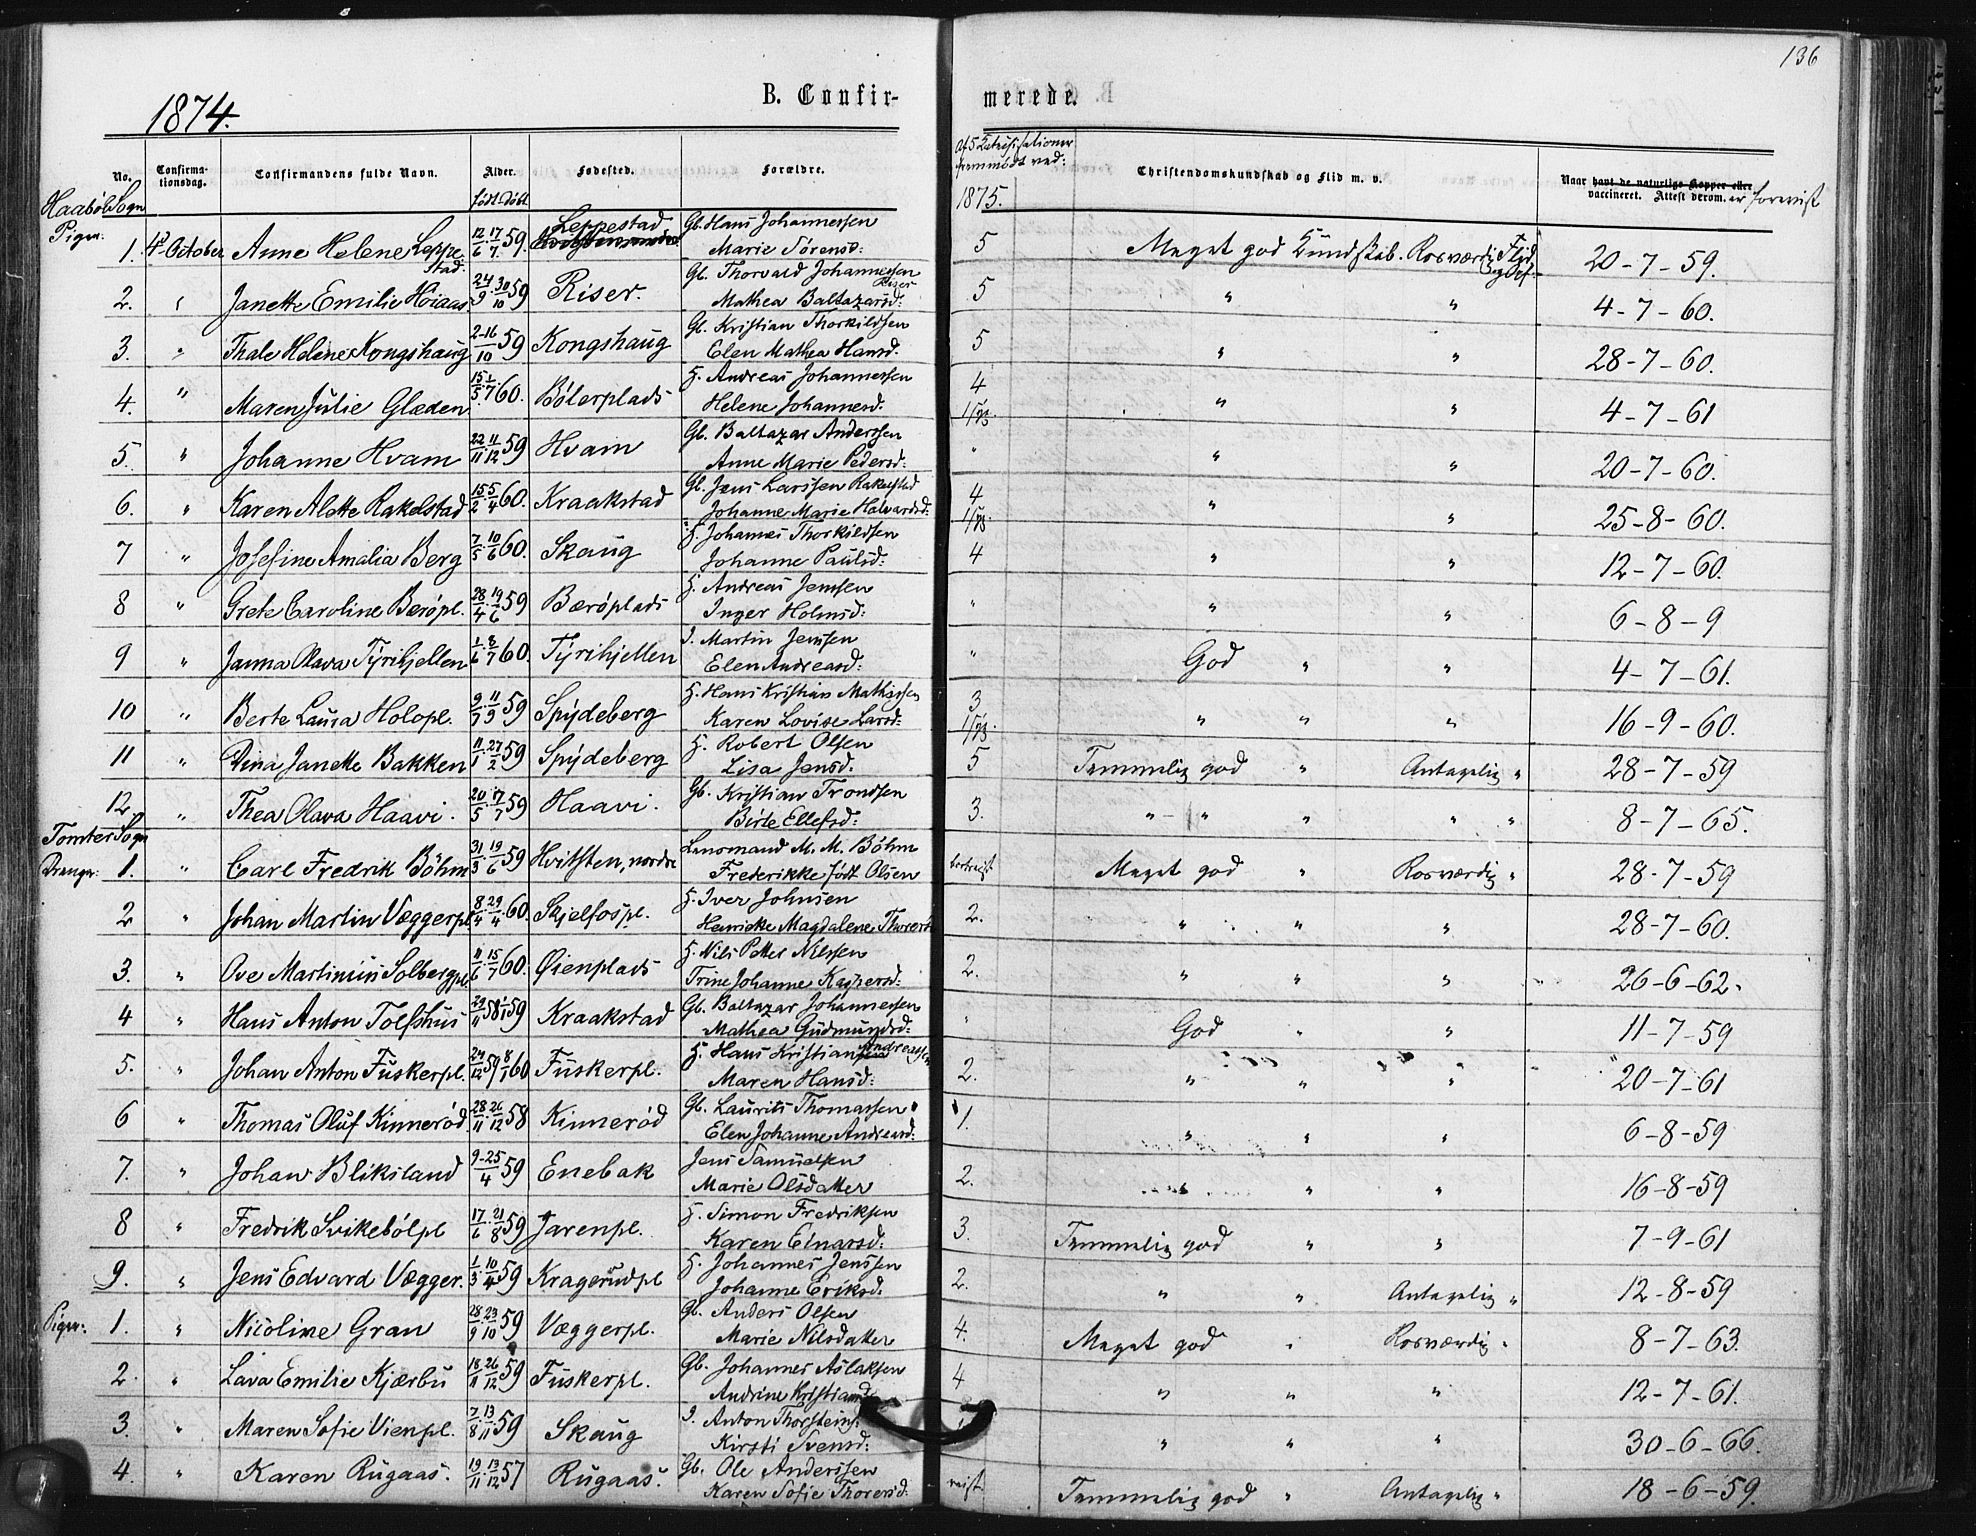 136
1874.
B. Confir-
merede.
No.
Confirma-
tionsdag.
Confirmandens fulde Navn.
Alder.
født-døbt
Fødested.
Forældre.
Af 5 Katekisationer
fremmødt ved:
1875.
Christendomskundskab og Flid m. v.
Naar havt de naturlige Kopper eller
vaccineret. Attest derom. er forevist
Haabøl Sogn
Piger:
1. 4 October Anne Helene Leppe-
stad. 12/6 17/7 59. Leppestad Gb. Hans Johannessen
Marie Sørensd: 5 Meget god Kundskab. Rosværdig Flid 20-7-59.
2. " Janette Emilie Høiaas. 24/9 30/10 59 Riser. Gb. Thorvald Johannessen
Riser
Mathea Baltazarsd: 5 " " 4-7-60.
3. " Thale Helene Kongshaug 2-16/10 59 Kongshaug Gb. Kristian Thorkildsen
Elen Mathea Hansd. 5 " " 28-7-60.
4. " Maren Julie Glæden 15/5 1/7 60. Bølerplads H. Andreas Johannessen
Helene Johannesd. 4 " " 4-7-61
5. " Johanne Hvam 22/11 11/12 59 Hvam Gb. Baltazar Anderssen
Anne Marie Pedersd: " " " 20-7-60.
6. " Karen Alette Rakelstad 15/2 5/4 60. Kraakstad Gb. Jens Larssen Rakelstad
Johanne Marie Halvardsd: 4 " " 25-8-60.
7 " Josefine Amalia Berg 7/5 10/6 60. Skaug H. Johannes Thorkildsen
Johanne Paulsd: 4 " " 12-7-60.
8 " Grete Caroline Berøpl. 28/4 19/6 59 Bærøplads H. Andreas Jenssen
Inger Holmsd: " " " 6-8-9
9 " Janna Olava Tyrihjellen 1/6 8/7 60. Tyrihjellen I. Martin Jenssen
Elen Andreasd: " God " " 4-7-61.
10 " Berte Laura Holopl. 9/7 11/9 59 Spydeberg H. Hans Kristian Mathissen
Karen Lovise Larsd: 3 " " " 16-9-60.
11 " Dina Janette Bakken 11/1 27/2 59 Spydeberg H. Robert Olsen
Lisa Jensd. 5 Temmelig god " Antagelig " 28-7-59
12 " Thea Olava Haavi. 20/5 17/7 59 Haavi. Gb. Kristian Trondsen
Birte Ellefsd: 3. " " " " " 8-7-65.
Tomter Sogn
Drenger: 1. " Carl Fredrik Böhm 31/3 19/6 59 Hvitsten, nordre Lensmand M. M. Böhm
Frederikke født Olsen bortreist Meget god " Rosværdig " 28-7-59
2 " Johan Martin Væggerpl. 8/4 29/4 60. Skjelfospl. H. Iver Johnsen
Henrikke Magdalene Thoresd 2. " " " 28-7-60.
3. " Ove Martinius Solbergpl. 11/6 15/7 60. Øienplads H. Nils Petter Nilssen
Trine Johanne Kaspersd: 2. " " " 26-6-62.
4 " Hans Anton Tolfshus 29/11 58 1/1 59 Kraakstad Gb. Baltazar Johannessen
Mathea Gudmundsd: " God " " 11-7-59
5. " Johan Anton Fuskerpl. 24/12 59 8/1 60 Fuskerpl. H. Hans Kristian Andreassen
Maren Hansd: 2. " " " 20-7-61
6 " Thomas Oluf Kinnerød. 28/11 26/12 58 Kinnerød Gb. Laurits Thomassen
Elen Johanne Andreasd: 1. " " " 6-8-59
7. " Johan Bliksland 9-25/4 59 Enebak Jens Samuelsen
Marie Olsdatter 2. " " " 16-8-59
8 " Fredrik Svikebølpl 17/6 21/8 59 Jarenpl. H. Simon Fredriksen
Karen Einarsd: 3. Temmelig god " " 7-9-61
9. " Jens Edvard Vægger. 1/3 10/4 59 Kragerudpl H. Johannes Jenssen
Johanne Eriksd: 2. " " Antagelig " 12-8-59
Piger: 1. " Nicoline Gran 28/9 23/10 59 Væggerpl. Gb. Anders Olsen
Marie Nilsdatter 4. Meget god " Rosværdig " 8-7-63.
2. " Lava Emilie Kjærbu 18/11 26/12 59 Fuskerpl. Gb. Johannes Aslaksen
Andrine Kristiansd 4 " " " 12-7-61.
3. " Maren Sofie Vienpl. 7/8 13/11 59 Skaug I. Anton Thorsteins.
Kirsti Svensd: " " " 30-6-66.
4. " Karen Rugaas. 19/11 13/12 57 Rugaas. Gb. Ole Anderssen
Karen Sofie Thoresd: reist Temmelig god " Antagelig " 18-6-59.